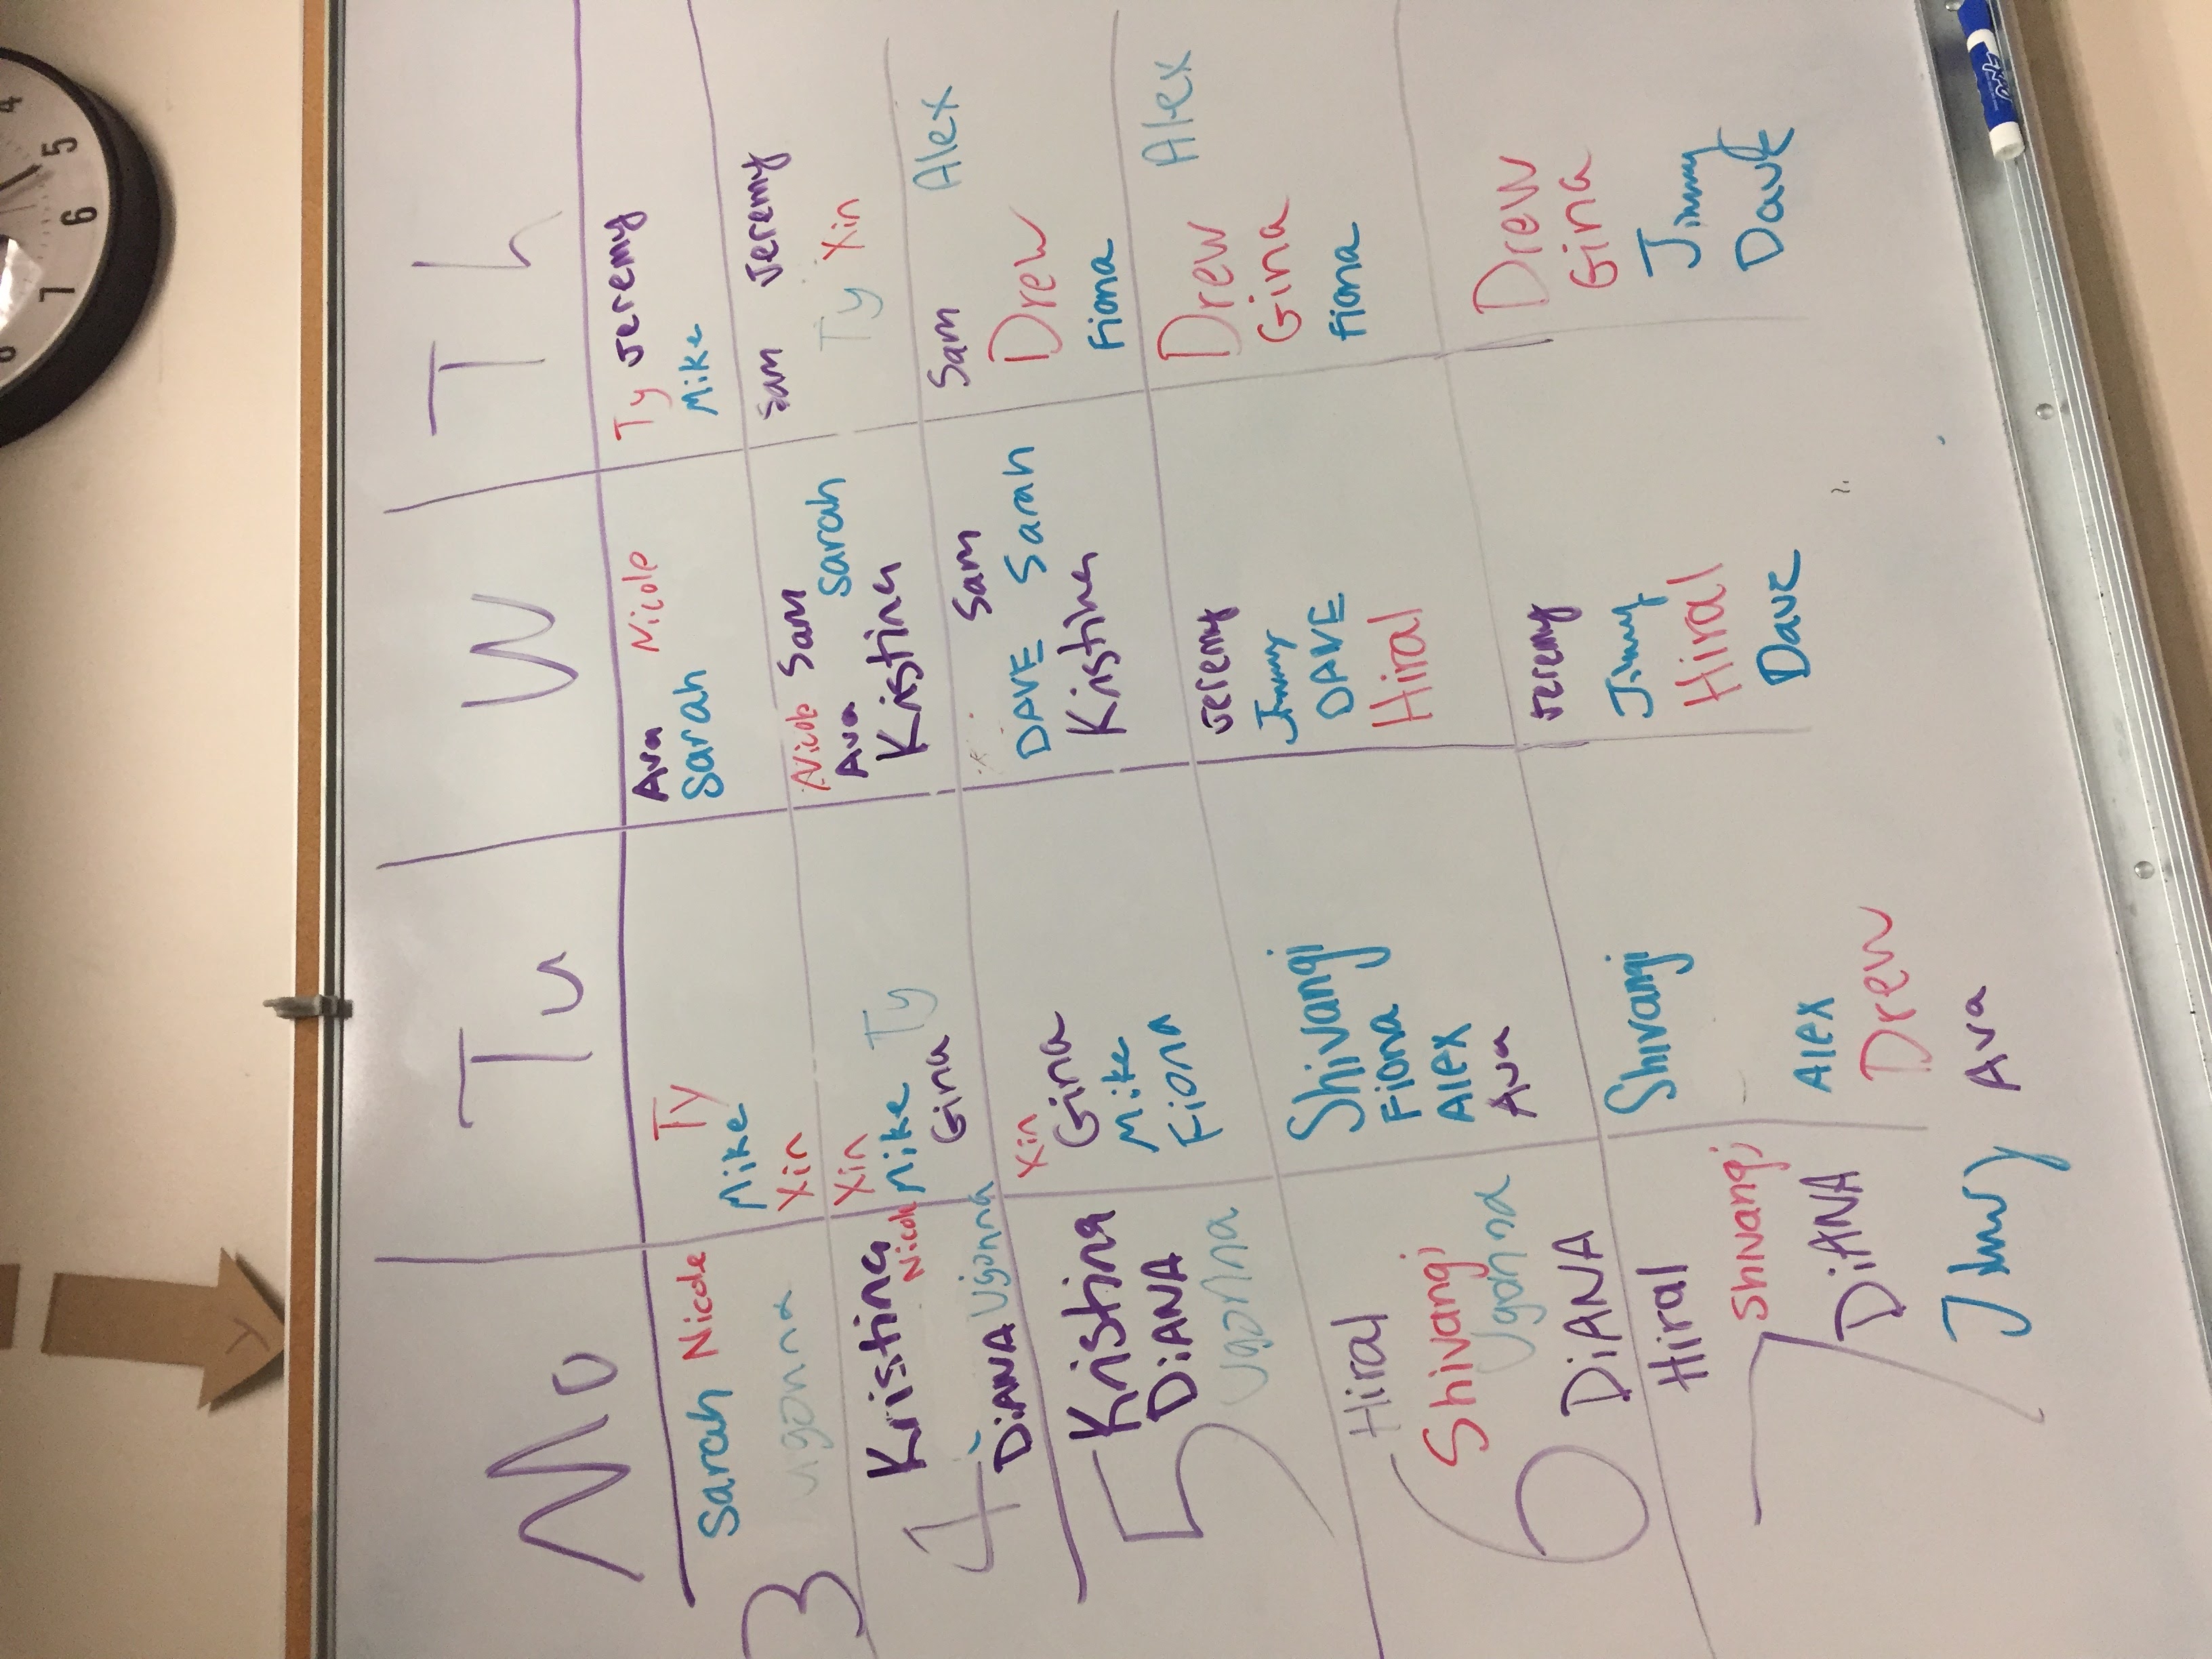 8 7 6 5 4
Y
Mo Tu W Th
3
Sarah Nicole
Ugonna
Ty
Mike
Xin
Ava Nicole
Sarah
Ty Jeremy
Mike
4
Kristina
Nicole
DiANA Ugonna
Xin
Mike Ty
Gina
Nicole Sam
Ava Sarah
Kristina
Sam Jeremy
Ty Xin
5
Kristina
DiANA
Ugonna
Xin
Gina
Mike
Fiona
Sam
DAVE Sarah
Kristina
Sam Alex
Drew
Fiona
6
Hiral
Shivangi
Ugonna
DiANA
Shivangi
Fiona
Alex
Ava
Jeremy
Jimmy
DAVE
Hiral
Drew Alex
Gina
Fiona
7
Hiral
Shivangi
DiANA
Jimmy
Shivangi
Alex
Drew
Ava
Jeremy
Jimmy
Hiral
Dave
Drew
Gina
Jimmy
Dave
EXPO